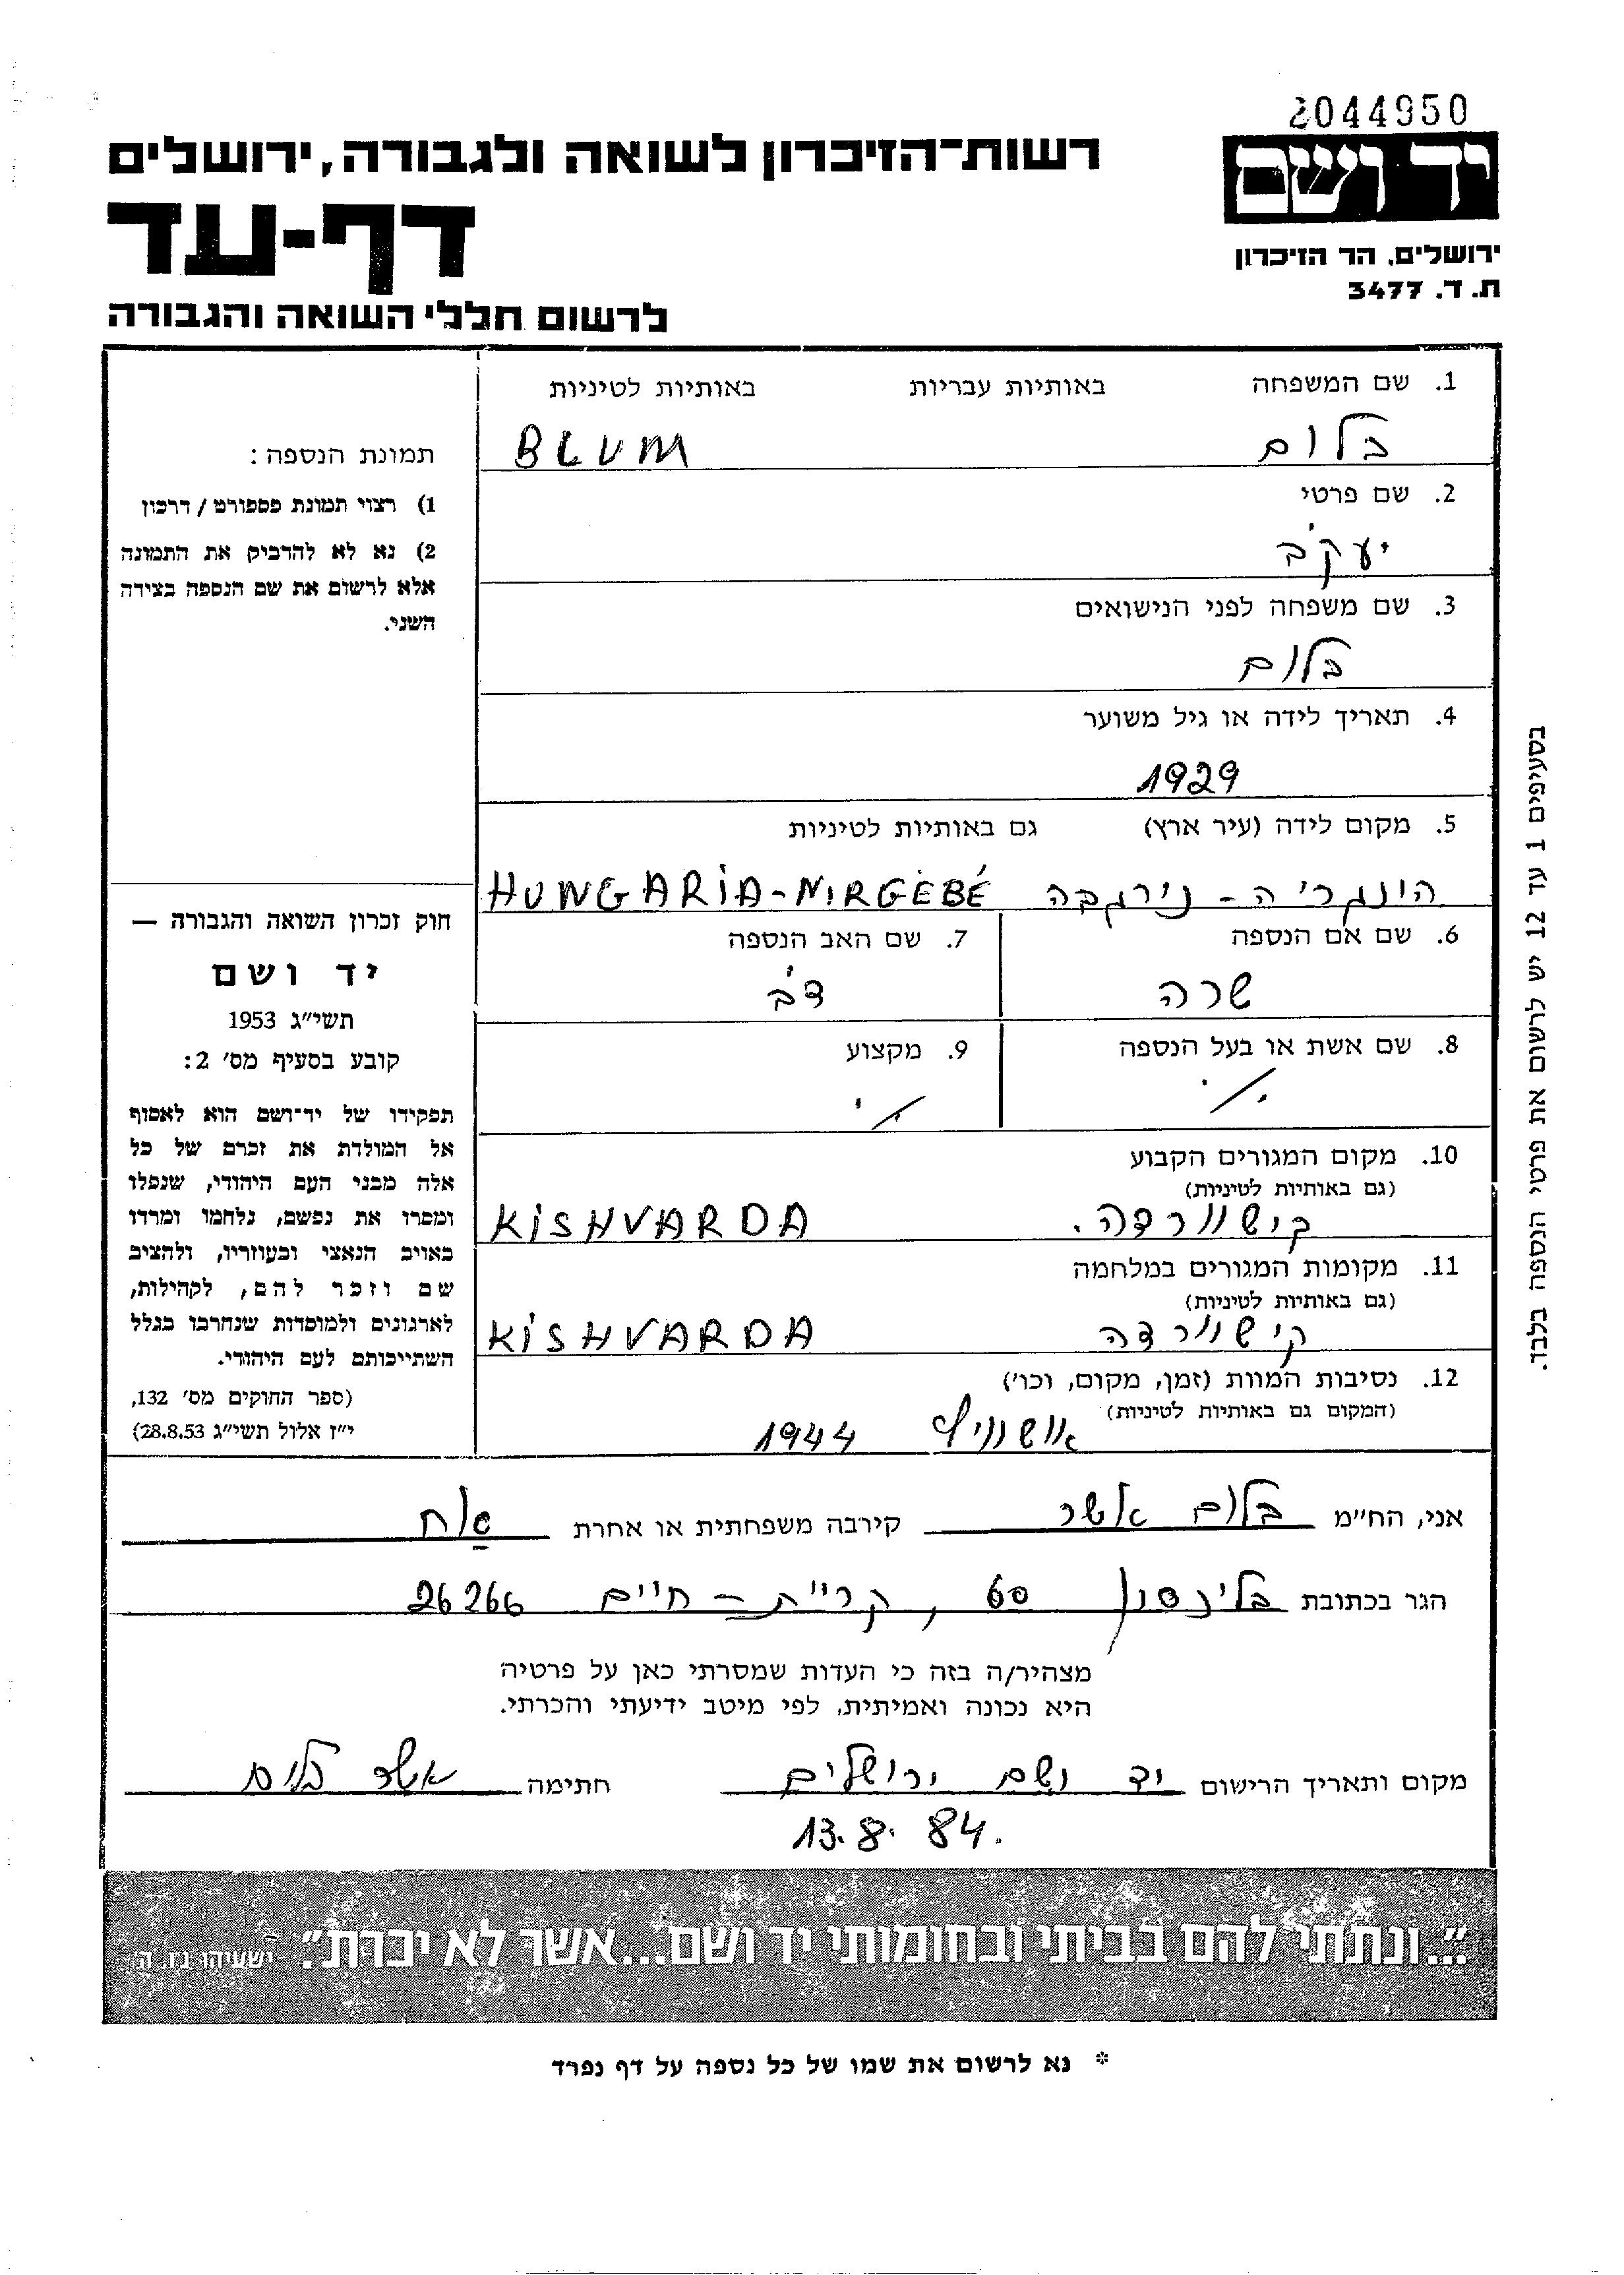 2044950
יד ושם
ירושלים, הר הזיכרון
ת. ד. 3477
רשות־הזיכרון לשואה ולגבורה, ירושלים
דף-עד
לרשום חללי השואה והגבורה
1. שם המשפחה באותיות עבריות באותיות לטיניות
בלום BLUM
2. שם פרטי
יעקב
3. שם משפחה לפני הנישואים
בלום
4. תאריך לידה או גיל משוער
1929
5. מקום לידה (עיר ארץ) גם באותיות לטיניות
הונגריה - נירגבה HUNGARIA-NIRGÈBÉ
6. שם אם הנספה 7. שם האב הנספה
שרה דב
8. שם אשת או בעל הנספה 9. מקצוע
./. ./.
10. מקום המגורים הקבוע
(גם באותיות לטיניות)
קישוורדה. KISHVARDA
11. מקומות המגורים במלחמה
(גם באותיות לטיניות)
קישוורדה KISHVARDA
12. נסיבות המוות (זמן, מקום, וכו')
(המקום גם באותיות לטיניות)
אושוויץ 1944
תמונת הנספה:
1) רצוי תמונת פספורט / דרכון
2) נא לא להדביק את התמונה
אלא לרשום את שם הנספה בצידה
השני.
חוק זכרון השואה והגבורה —
יד ושם
תשי"ג 1953
קובע בסעיף מס' 2:
תפקידו של יד־ושם הוא לאסוף
אל המולדת את זכרם של כל
אלה מבני העם היהודי, שנפלו
ומסרו את נפשם, נלחמו ומרדו
באויב הנאצי ובעוזריו, ולהציב
שם וזכר להם, לקהילות,
לארגונים ולמוסדות שנחרבו בגלל
השתייכותם לעם היהודי.
(ספר החוקים מס' 132,
י"ז אלול תשי"ג 28.8.53)
בסעיפים 1 עד 12 יש לרשום את פרטי הנספה בלבד.
אני, הח"מ בלום אשר קירבה משפחתית או אחרת אח
הגר בכתובת בלינסון 60, קריית - חיים 26266
מצהיר/ה בזה כי העדות שמסרתי כאן על פרטיה
היא נכונה ואמיתית, לפי מיטב ידיעתי והכרתי.
מקום ותאריך הרישום יד ושם ירושלים חתימה אשר בלום
13.8.84.
"...ונתתי להם בביתי ובחומותי יד ושם...אשר לא יכרת". ישעיהו נו, ה'
* נא לרשום את שמו של כל נספה על דף נפרד